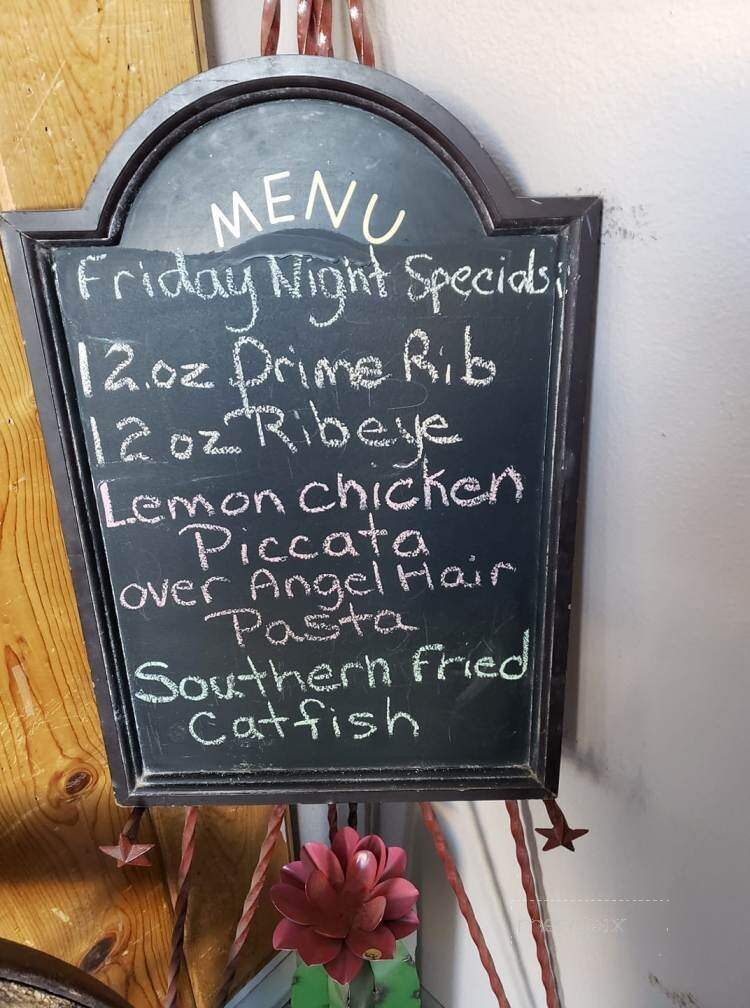 MENU
Friday Night Specials:
12.oz Prime Rib
12 oz Ribeye
Lemon chicken
Piccata
over Angel Hair
Pasta
Southern Fried
Catfish